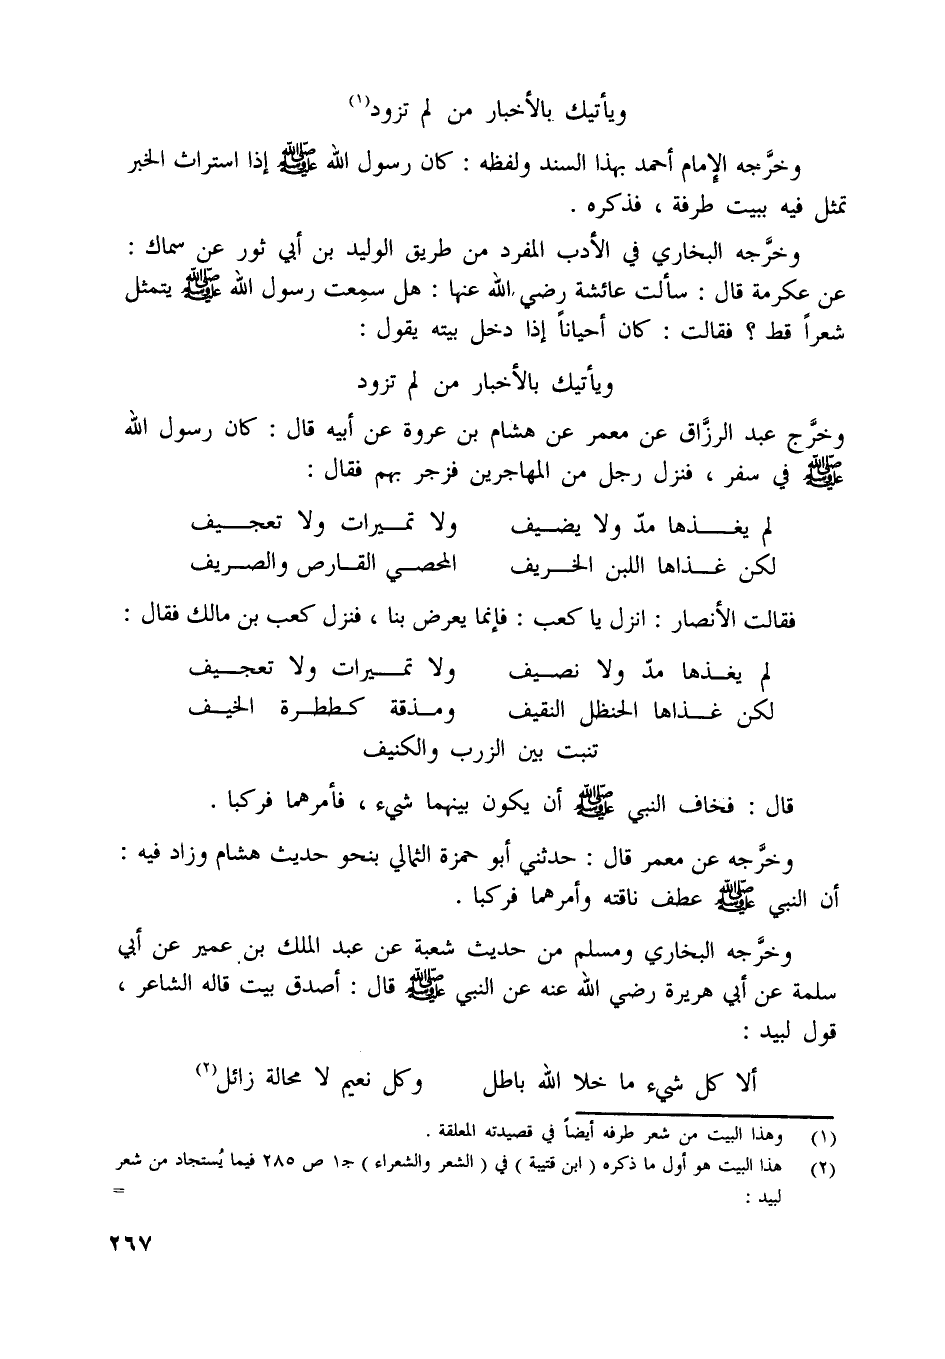 ويأتيك بالأخبار من لم تزود(١)
وخرَّجه الإمام أحمد بهذا السند ولفظه : كان رسول الله ﷺ إذا استراث الخبر
تمثل فيه ببيت طرفة ، فذكره .
وخرَّجه البخاري في الأدب المفرد من طريق الوليد بن أبي ثور عن سماك :
عن عكرمة قال : سألت عائشة رضي الله عنها : هل سمعت رسول الله ﷺ يتمثل
شعراً قط ؟ فقالت : كان أحياناً إذا دخل بيته يقول :
ويأتيك بالأخبار من لم تزود
وخرَّج عبد الرزَّاق عن معمر عن هشام بن عروة عن أبيه قال : كان رسول الله
ﷺ في سفر ، فنزل رجل من المهاجرين فزجر بهم فقال :
لم يغـــذها مدّ ولا يضـيف ولا تمـــيرات ولا تعجـــيف
لكن غـــذاها اللبن الخـــريف المحصـي القـارص والصـريف
فقالت الأنصار : انزل يا كعب : فإنما يعرض بنا ، فنزل كعب بن مالك فقال :
لم يغـــذها مدّ ولا نصـــيف ولا تمـــيرات ولا تعجـــيف
لكن غـــذاها الحنظل النقيف ومـــذقة كـطـطـرة الخيـــف
تنبت بين الزرب والكنيف
قال : فخاف النبي ﷺ أن يكون بينهما شيء ، فأمرهما فركبا .
وخرَّجه عن معمر قال : حدثني أبو حمزة الثمالي بنحو حديث هشام وزاد فيه :
أن النبي ﷺ عطف ناقته وأمرهما فركبا .
وخرَّجه البخاري ومسلم من حديث شعبة عن عبد الملك بن عمير عن أبي
سلمة عن أبي هريرة رضي الله عنه عن النبي ﷺ قال : أصدق بيت قاله الشاعر ،
قول لبيد :
ألا كل شيء ما خلا الله باطل وكل نعيم لا محالة زائل(٢)
(١) وهذا البيت من شعر طرفه أيضاً في قصيدته المعلقة .
(٢) هذا البيت هو أول ما ذكره ( ابن قتيبة ) في ( الشعر والشعراء ) جـ١ ص ٢٨٥ فيما يُستجاد من شعر
لبيد : =
٢٦٧